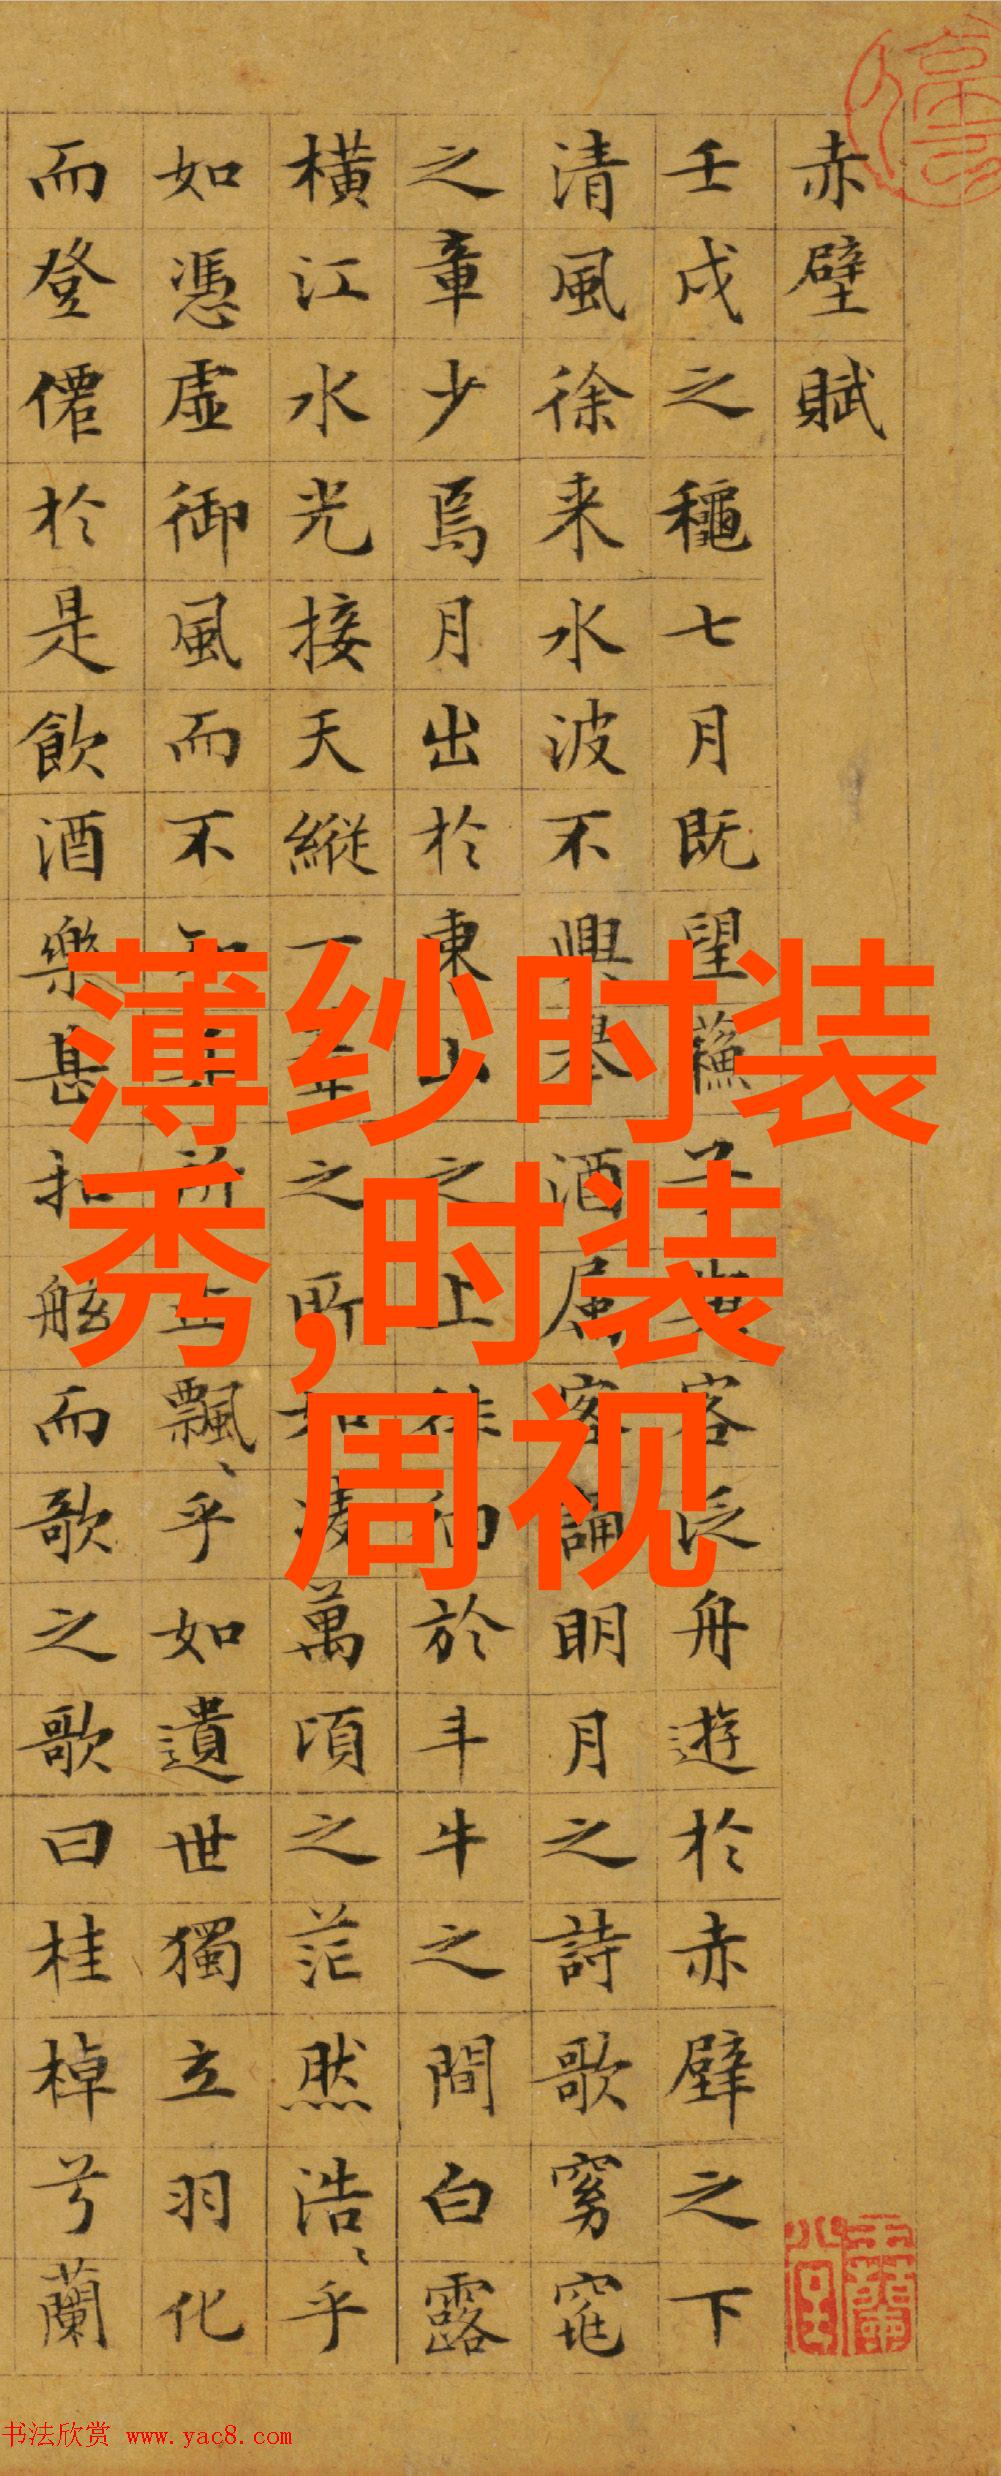 赤壁賦
壬戌之穐七月既望蘓子與客泛舟遊於赤壁之下
清風徐来水波不興舉酒屬客誦明月之詩歌窈窕
之章少焉月出於東山之上徘徊於斗牛之間白露
橫江水光接天縱一葦之所如凌萬頃之茫然浩〻乎
如憑虛御風而不知其所止飄〻乎如遺世獨立羽化
而登僊於是飲酒樂甚扣舷而歌之歌曰桂棹兮蘭
薄纱时装
秀,时装
周视
书法欣赏 www.yac8.com